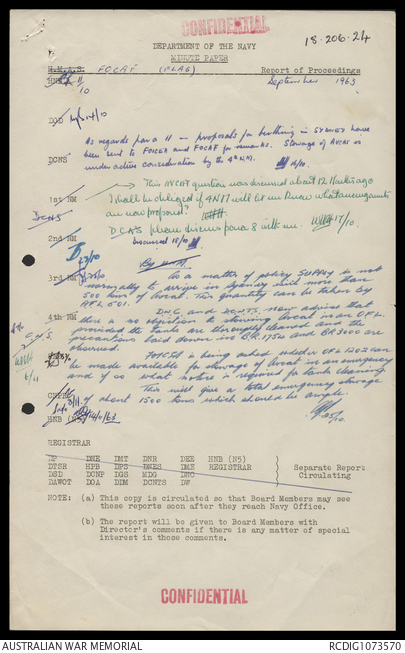 CONFIDENTIAL
18·206·24
DEPARTMENT OF THE NAVY
MINUTE PAPER
H.M.A.S. FOCAF (FLAG) Report of Proceedings
September 1963
DCNS
As regards para 11 — proposals for berthing in SYDNEY have
been sent to FOICEA and FOCAF for remarks. Stowage of Avcat is
under active consideration by the 4th N.M.
1st NM
This AVCAT question was discussed about 12 months ago
I shall be obliged if 4NM will let me know what arrangements
are now proposed?
DCNS
2nd NM
DCNS please discuss para 8 with me. 17/10.
Discussed 18/10
3rd NM
As a matter of policy SUPPLY is not
normally to arrive in Sydney with more than
500 tons of Avcat. This quantity can be taken by
AFL 501.
4th NM
DNC and DCNTS now advise that
there is no objection to stowing Avcat in an OFL
provided the tanks are thoroughly cleaned and the
precautions laid down in B.R.1750 and BR3000 are
observed.
FOICEA is being asked whether OFL 1202 can
be made available for stowage of Avcat in an emergency
and if so what notice is required for tank cleaning.
This will give a total emergency stowage
of about 1500 tons which should be ample.
25/10.
HNB 14/11/63
REGISTRAR
DP DNE DMT DNR DEE HNB (N5)
DTSR HPB DPS DNES DME REGISTRAR
DSD DCNP DGS MDG DNC
DAWOT DOA DIM DCNTS DW
Separate Report
Circulating
NOTE: (a) This copy is circulated so that Board Members may see
these reports soon after they reach Navy Office.
(b) The report will be given to Board Members with
Director's comments if there is any matter of special
interest in those comments.
CONFIDENTIAL
AUSTRALIAN WAR MEMORIAL
RCDIG1073570